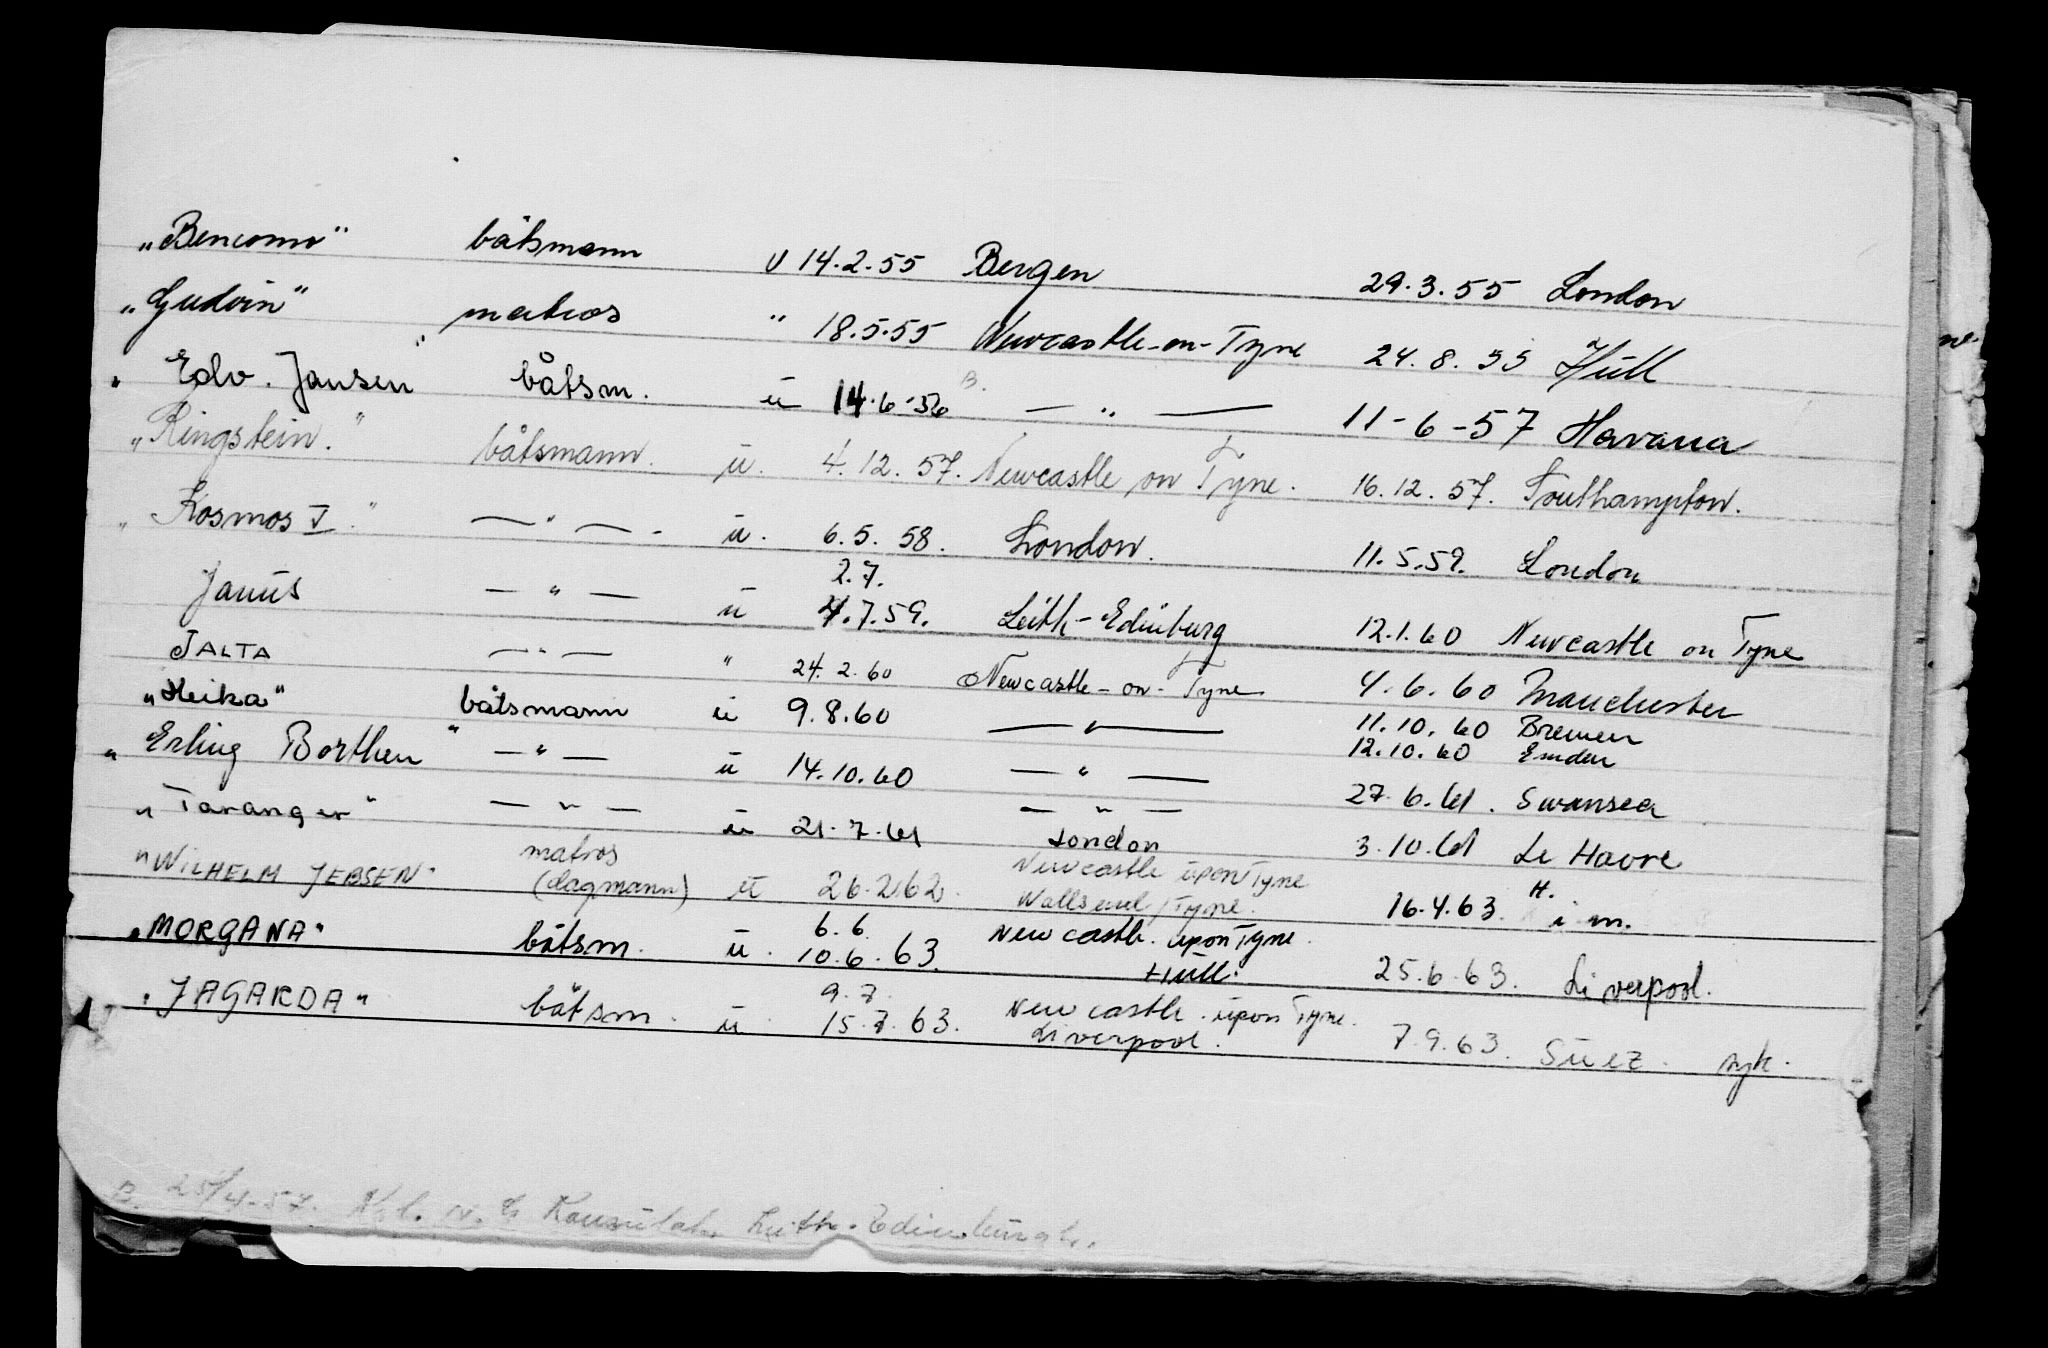 „Bencomo" båtsmann u 14.2.55 Bergen 29.3.55 London
„Gudvin" matros " 18.5.55 Newcastle-on-Tyne 24.8.55 Hull
„Edv. Jansen" båtsm. u 14.6.56 B. — " — 11-6-57 Havana
„Ringstein." båtsmann. u. 4.12.57. Newcastle on Tyne. 16.12.57. Southampton.
„Kosmos V." — " — . u. 6.5.58. London. 11.5.59. London
2.7.
Janus — " — u 4.7.59. Leith-Edinburg 12.1.60 Newcastle on Tyne
JALTA — " — " 24.2.60 Newcastle-on-Tyne 4.6.60 Manchester
„Heika" båtsmann u 9.8.60 — " — 11.10.60 Bremen
12.10.60 Emden
„Erling Borthen" — " — u 14.10.60 — " — 27.6.61. Swansea
„Taranger" — " — u 21.7.61 — " — London 3.10.61 Le Havre
matros Newcastle upon Tyne
„WILHELM JEBSEN" (dagmann) u 26.2.62. Wallsend/Tyne. 16.4.63. H. i m.
6.6. Newcastle upon Tyne.
„MORGANA" båtsm. u. 10.6.63. Hull. 25.6.63. Liverpool.
9.7. Newcastle upon Tyne.
„JAGARDA" båtsm. u. 15.7.63. Liverpool. 7.9.63. Suez. syk.
B. 25/4-57. N. G. Konsulat. Leith-Edinburgh.